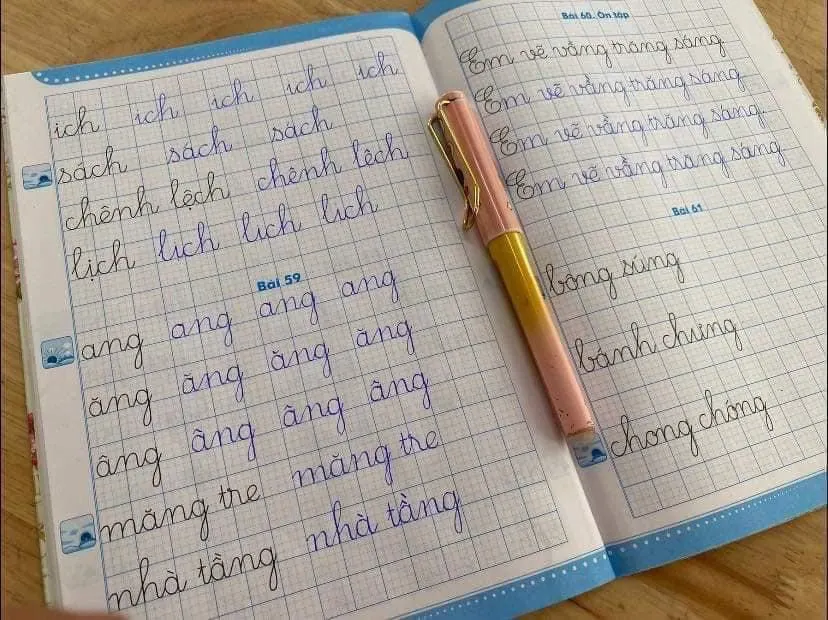 ich ich ich ich ich
sách sách sách
chênh lệch chênh lệch
lịch lịch lịch lịch
Bài 59
ang ang ang ang
ăng ăng ăng ăng
âng âng âng âng
măng tre măng tre
nhà tầng nhà tầng
Bài 60. Ôn tập
Em vẽ vầng trăng sáng
Em vẽ vầng trăng sáng
Em vẽ vầng trăng sáng.
Em vẽ vầng trăng sáng
Bài 61
bông súng
bánh chưng
chong chóng